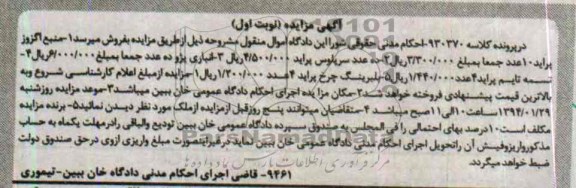 آگهی مزایده (نوبت اول)
درپرونده کلاسه ۹۳۰۳۷۰-احکام مدنی حقوقی شورا این دادگاه اموال منقول مشروحه ذیل ازطریق مزایده بفروش میرسد۱-منبع اگزوز
پراید۱۰عدد جمعا بمبلغ ۳/۳۰۰/۰۰۰ریال۲-ده عدد سرپلوس پراید ۴/۵۰۰/۰۰۰ریال ۳-غباری پژو ده عدد جمعا بمبلغ۶/۰۰۰/۰۰۰ریال۴-
تسمه تایم پراید۴عدد۱/۴۴۰/۰۰۰ریال۵-بلبرینگ چرخ پراید ۴عدد۱/۲۰۰/۰۰۰ریال۱-مزایده ازمبلغ اعلام کارشناسی شروع وبه
بالاترین قیمت پیشنهادی فروخته خواهد شد۲-مکان مزایده اجرای احکام دادگاه عمومی خان ببین میباشد۳-موعد مزایده روزشنبه
۱۳۹۴/۰۱/۲۹ساعت۱۰الی۱۱صبح میباشد ۴-متقاضیان میتوانند پنج روزقبل ازمزایده ازملک مورد نظر دیدن نمائید۵-برنده مزایده
مکلف است۱۰درصد بهای احتمالی را فی المجلس به صندوق سپرده دادگاه عمومی خان ببین تودیع والباقی رادرمهلت یکماه به حساب
مذکورواریزوفیش آن راتحویل اجرای احکام مدنی دادگاه عمومی خان ببین نماید درغیراینصورت مبلغ واریزی ازوی درحق صندوق دولت
ضبط خواهد میگردد.
۹۴۶۱- قاضی اجرای احکام مدنی دادگاه خان ببین-تیموری